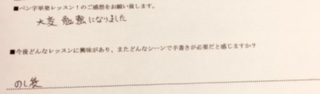 ■ペン字単発レッスン！のご感想をお願い致します。
大変 勉強になりました
■今後どんなレッスンに興味があり、またどんなシーンで手書きが必要だと感じますか？
のし袋